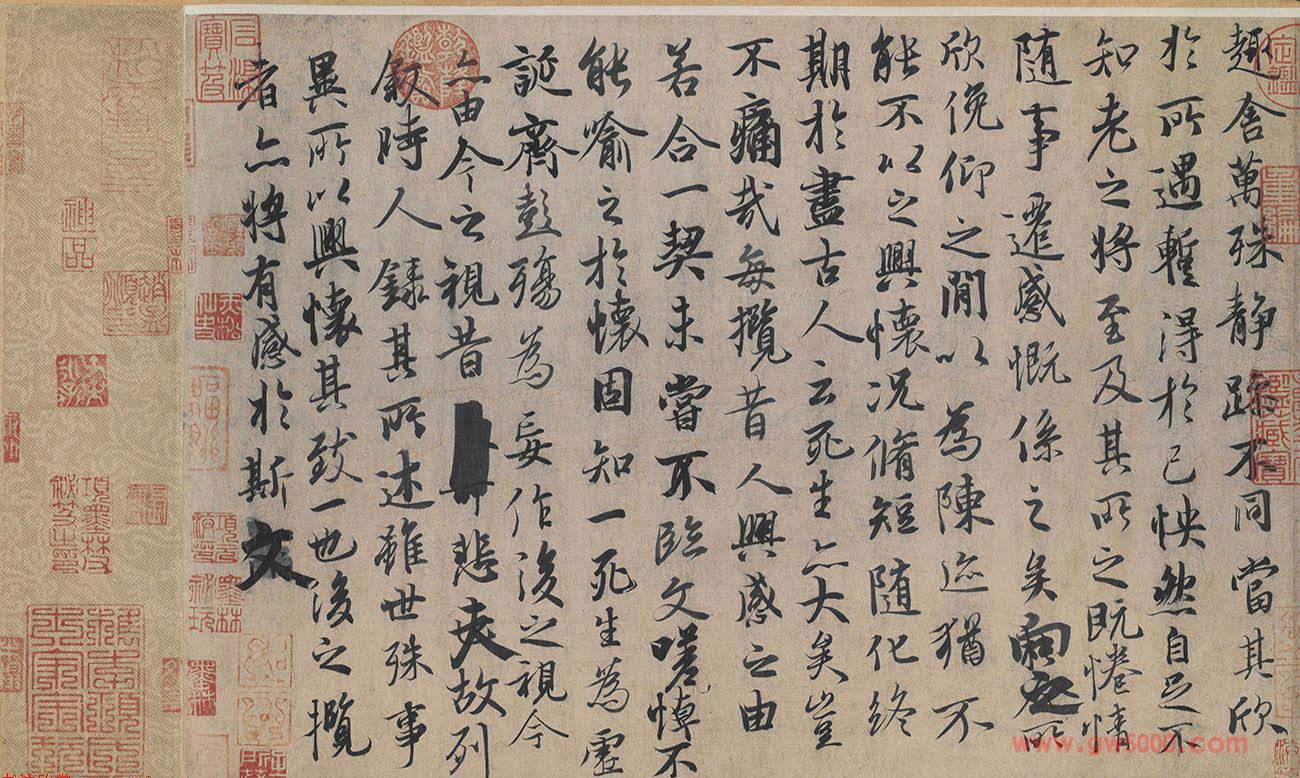 趣舍萬殊静躁不同當其欣
於所遇暫得於己怏然自足不
知老之將至及其所之既惓情
随事遷感慨係之矣向之所
欣俛仰之閒以為陳迹猶不
能不以之興懷况脩短随化終
期於盡古人云死生亦大矣豈
不痛哉每攬昔人興感之由
若合一契未嘗不臨文嗟悼不
能喻之於懷固知一死生為虚
誕齊彭殤為妄作後之視今
亦由今之視昔悲夫故列
叙時人録其所述雖世殊事
異所以興懷其致一也後之攬
者亦將有感於斯文
神品
www.gw5000.com